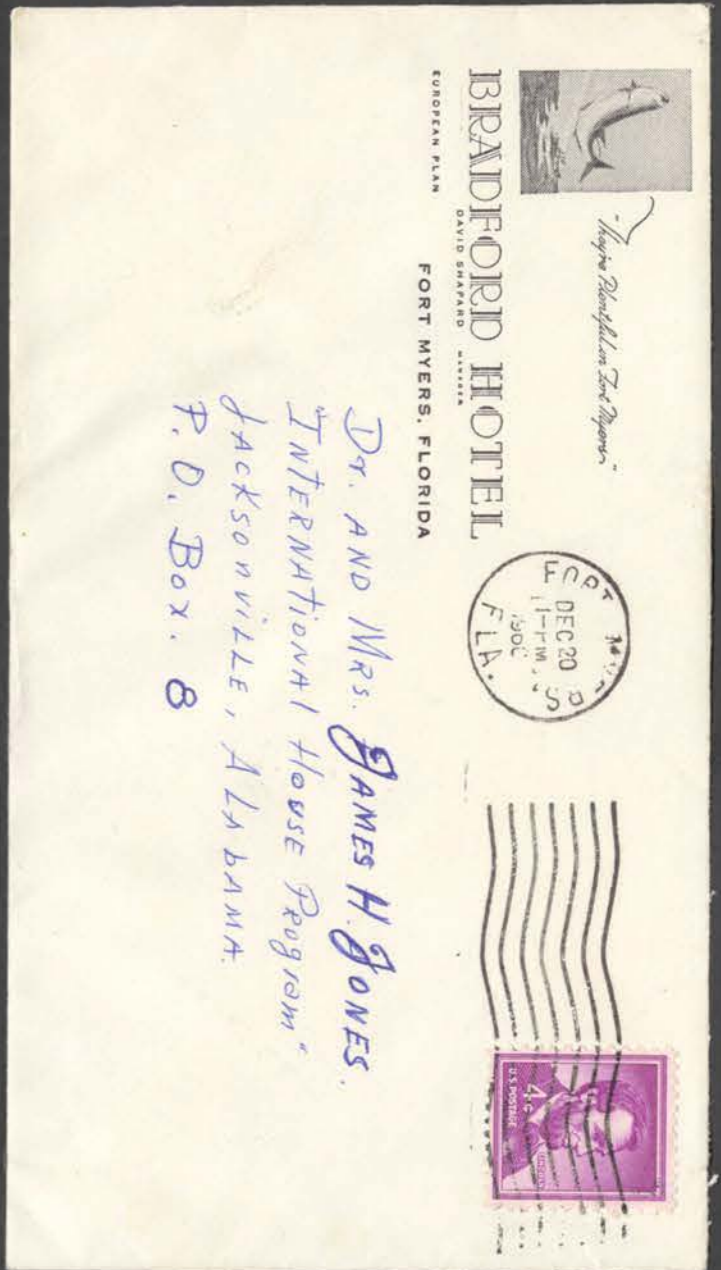 "They're Plentiful in Fort Myers"
BRADFORD HOTEL
DAVID SHAPARD MANAGER
EUROPEAN PLAN
FORT MYERS, FLORIDA
FORT
DEC 20
1-PM
FLA.
4¢
U.S. POSTAGE
LINCOLN
Dr. AND MRS. JAMES H. JONES.
INTERNATIONAL HOUSE PROGRAM"
JACKSONVILLE, ALABAMA.
P.O. BOX. 8